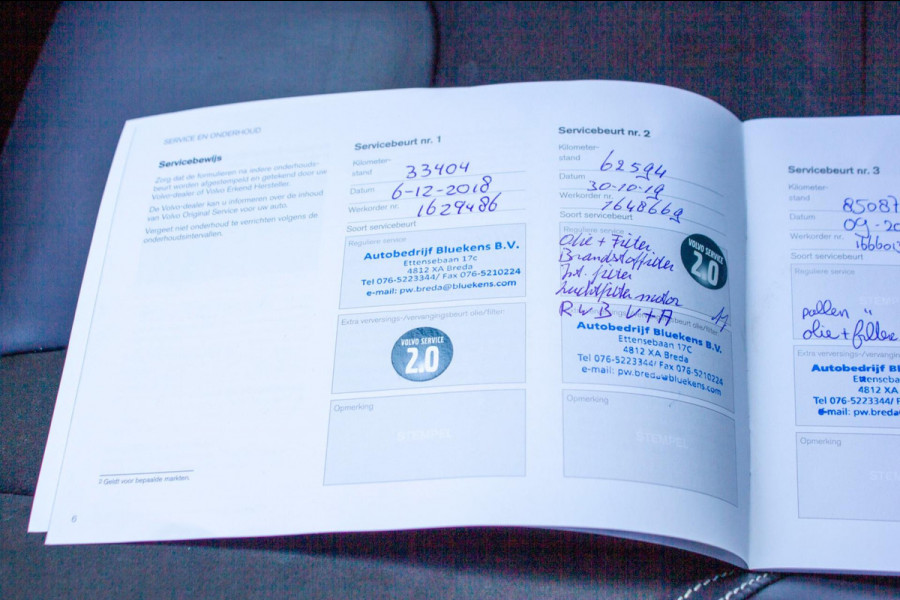 SERVICE EN ONDERHOUD
Servicebewijs
Zorg dat de formulieren na iedere onderhouds-
beurt worden afgestempeld en getekend door uw
Volvo-dealer of Volvo Erkend Hersteller.
De Volvo-dealer kan u informeren over de inhoud
van Volvo Original Service voor uw auto.
Vergeet niet onderhoud te verrichten volgens de
onderhoudsintervallen.
Geldt voor bepaalde markten.
6
Servicebeurt nr. 1
Kilometer-
stand 33404
Datum 6-12-2018
Werkorder nr. 1629486
Soort servicebeurt
Reguliere service
Autobedrijf Bluekens B.V.
Ettensebaan 17c
4812 XA Breda
Tel 076-5223344/ Fax 076-5210224
e-mail: pw.breda@bluekens.com
Extra verversings-/vervangingsbeurt olie/filter
VOLVO SERVICE
2.0
Opmerking
STEMPEL
Servicebeurt nr. 2
Kilometer-
stand 62594
Datum 30-10-19
Werkorder nr.
Soort servicebeurt
Reguliere service
Olie + Filter
Brandstoffilter
Int. filter
Luchtfilter motor
RWB V+A
VOLVO SERVICE
2.0
Autobedrijf Bluekens B.V.
Ettensebaan 17c
4812 XA Breda
Tel 076-5223344/ Fax 076-5210224
e-mail: pw.breda@bluekens.com
Opmerking
STEMPEL
Servicebeurt nr. 3
Kilometer-
stand 85087
Datum 09-20
Werkorder nr.
Soort servicebeurt
Reguliere service
pollen "
olie + filter
Extra verversings-/vervanging
Autobedrijf Bl
Ettenseba
4812 XA
Tel 076-5223344/ F
e-mail: pw.breda
Opmerking
STE